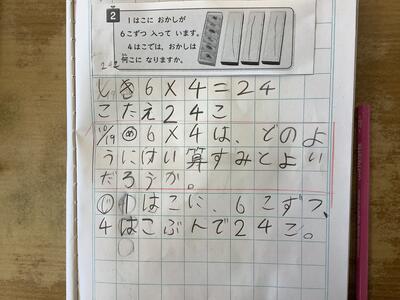 2
1はこに おかしが
6こずつ 入って います。
4はこでは、おかしは
何こに なりますか。
しき6×4=24
こたえ24こ
10/19 め6×4は、どのよ
うにけい算すみとよい
だろうか。
1はこに、6こずつ、
4はこぶんで24こ。